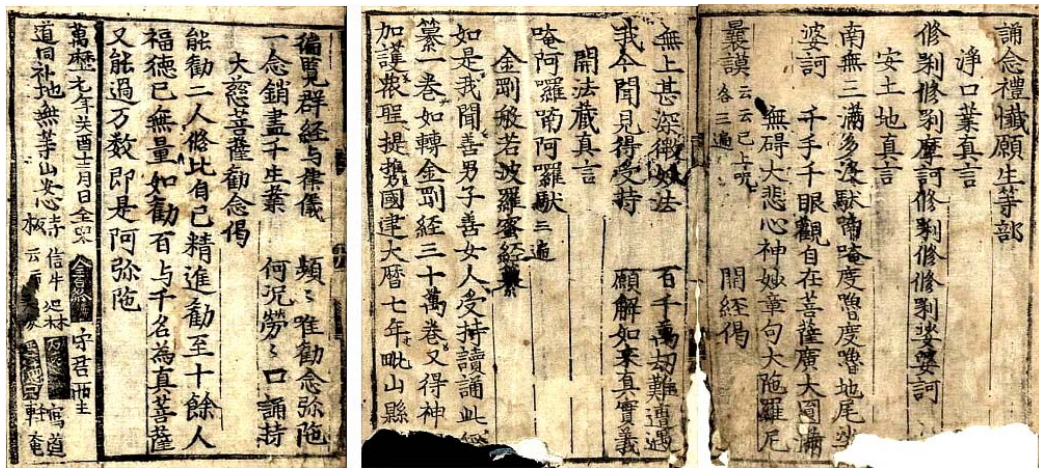 誦念禮懺願生等部
淨口業真言
修利修利摩訶修利修修利娑婆訶
安土地真言
南無三滿多没馱喃唵度嚕度嚕地尾娑
婆訶 千手千眼觀自在菩薩廣大圓滿
無碍大悲心神妙章句大陁羅尼
曩謨 云云已上呪各三遍 開經偈
無上甚深微妙法 百千萬刼難遭遇
我今聞見得受持 願解如来真實義
開法藏真言
唵阿羅喃阿羅馱 三遍
金剛般若波羅蜜經纂
如是我聞善男子善女人受持讀誦此經
纂一卷如轉金剛經三十萬卷又得神
加護衆聖提携國建大曆七年毗山縣
徧覽群經与律儀 頻〻唯勸念弥陁
一念銷盡千生業 何況勞〻口誦持
大慈菩薩勸念偈
能勸二人修比自已精進勸至十餘人
福德已無量如勸百与千名為真菩薩
又能過万数即是阿弥陁
萬曆元年癸酉十二月日全羅
道同社地無等山安心寺